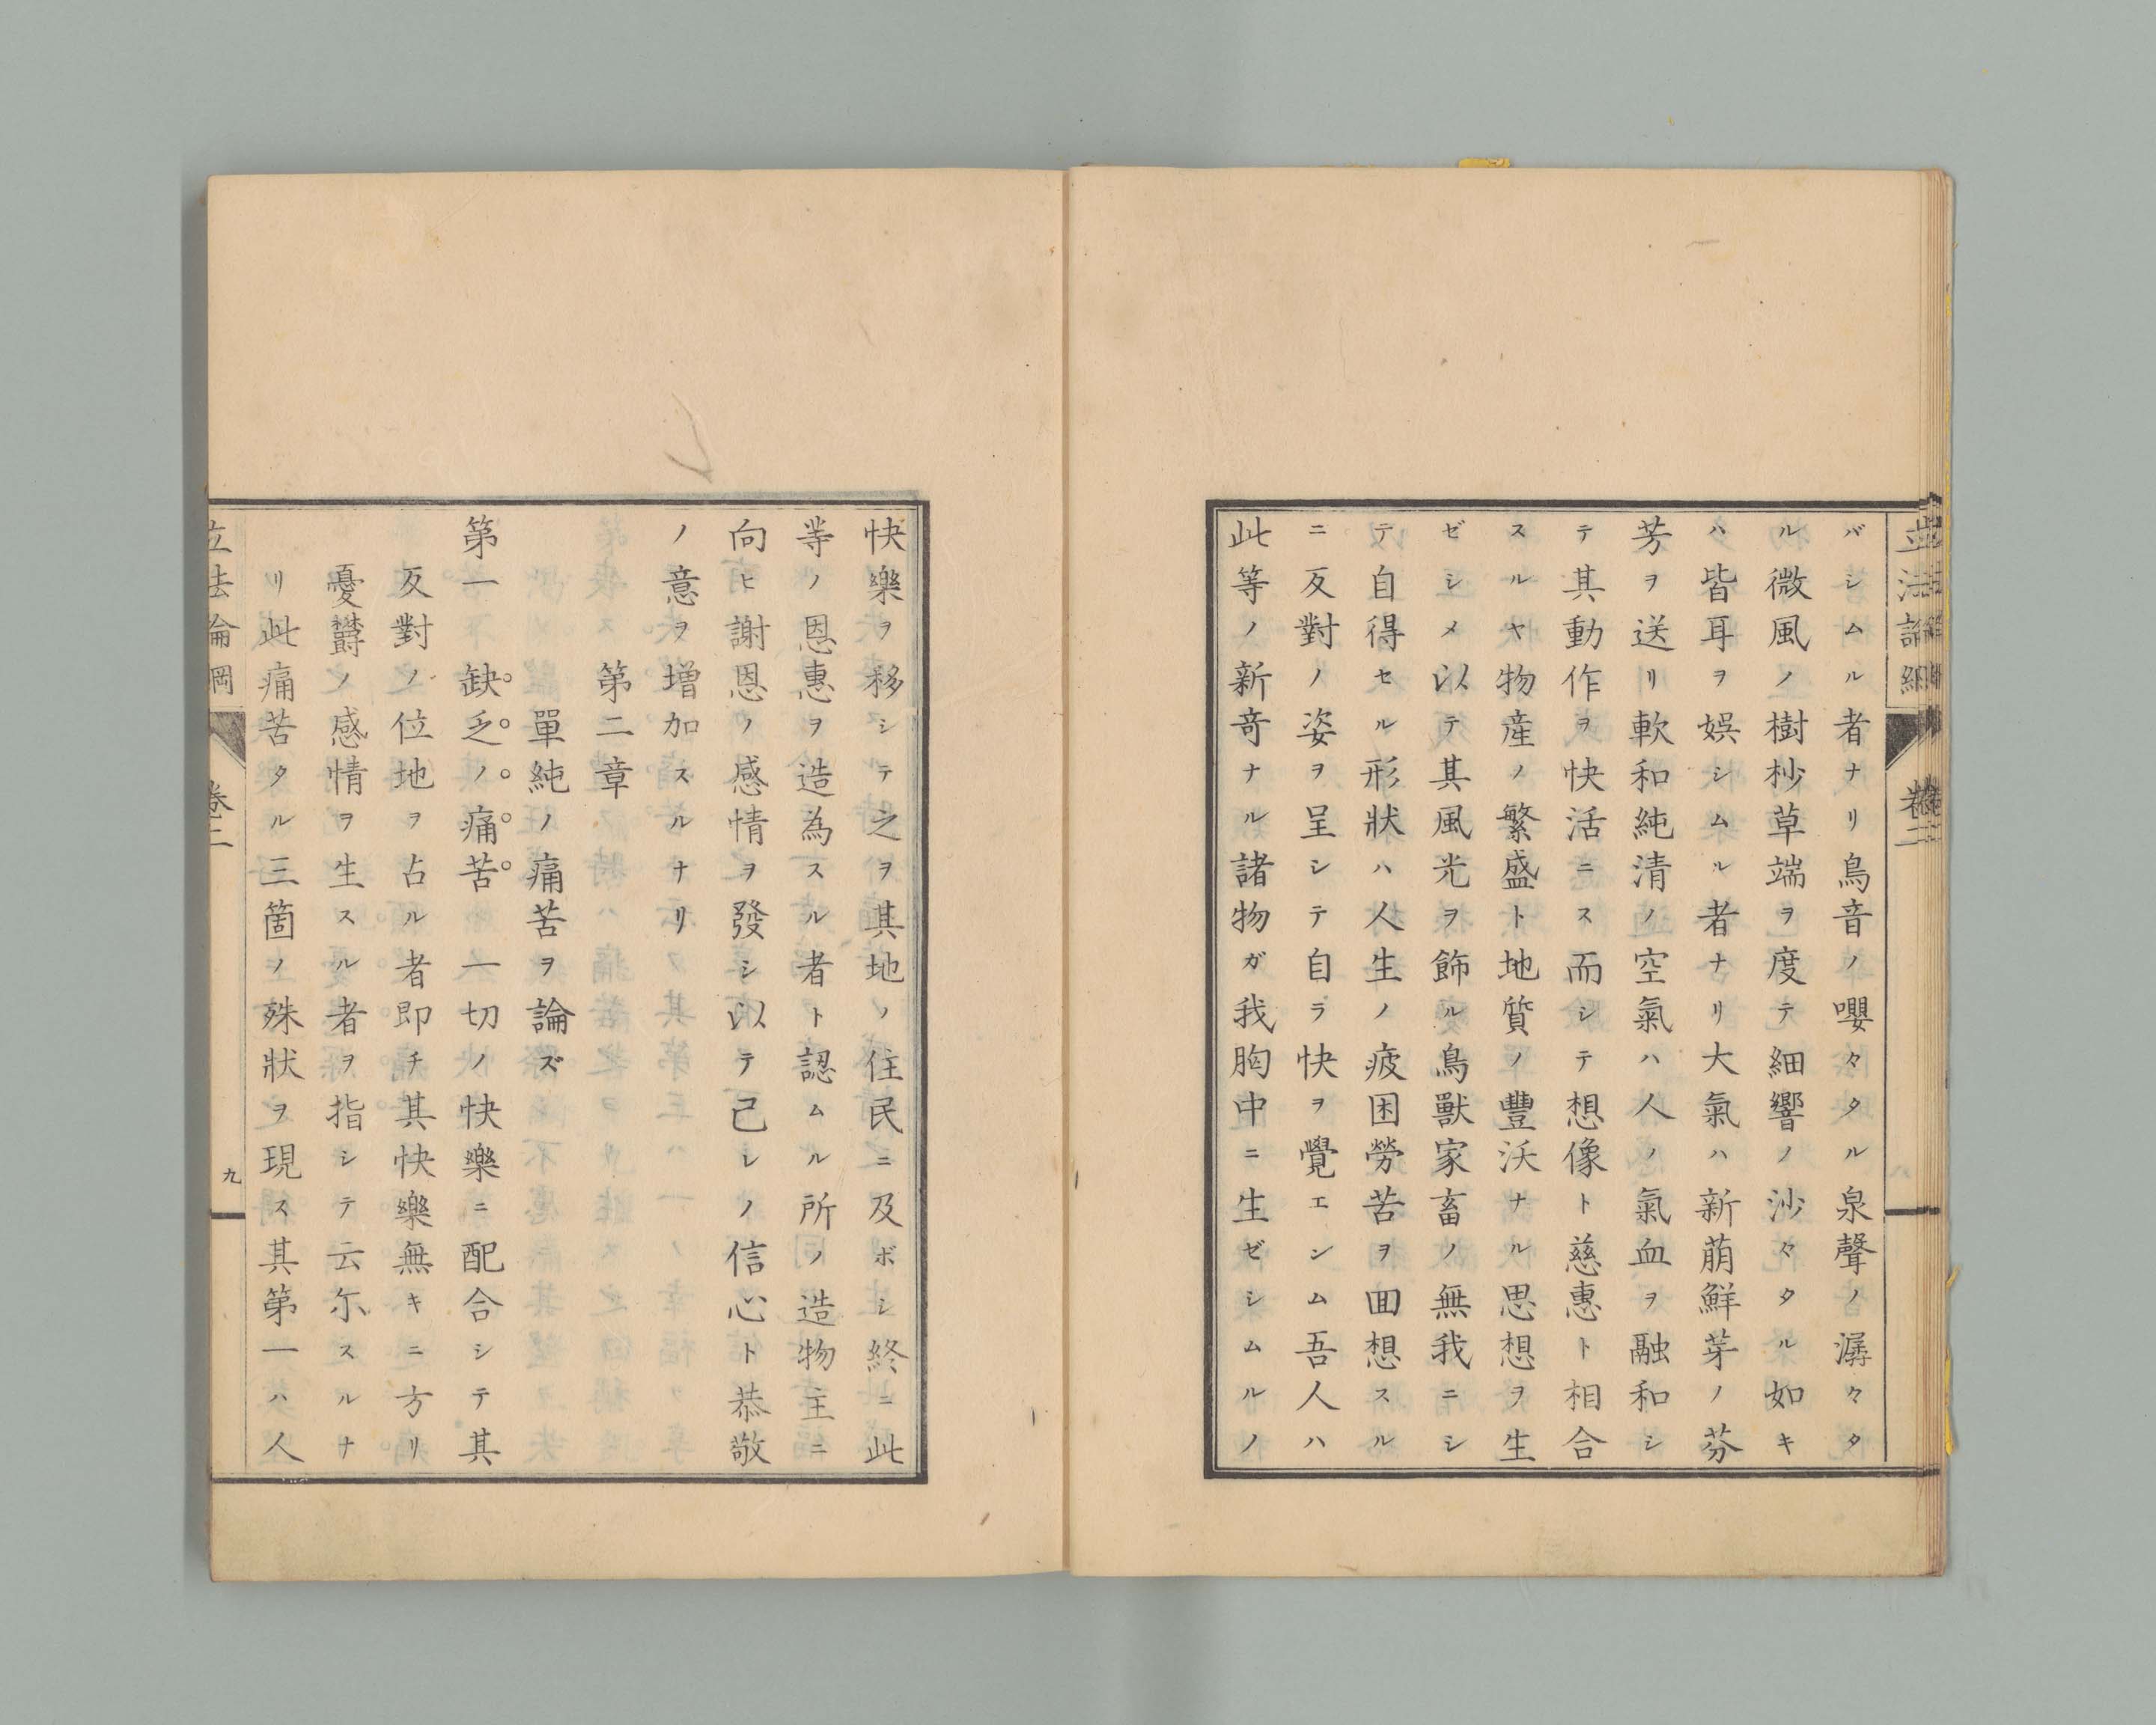 立法論綱 卷二
バシムル者ナリ鳥音ノ嚶々タル泉聲ノ潺々タ
ル微風ノ樹杪草端ヲ度テ細響ノ沙々タル如キ
ハ皆耳ヲ娯シムル者ナリ大氣ハ新萠鮮芽ノ芬
芳ヲ送リ軟和純清ノ空氣ハ人ノ氣血ヲ融和シ
テ其動作ヲ快活ニス而シテ想像ト慈惠ト相合
スルヤ物產ノ繁盛ト地質ノ豐沃ナル思想ヲ生
ゼシメ以テ其風光ヲ飾ル鳥獸家畜ノ無我ニシ
テ自得セル形狀ハ人生ノ疲困勞苦ヲ囬想スル
ニ反對ノ姿ヲ呈シテ自ラ快ヲ覺エシム吾人ハ
此等ノ新奇ナル諸物ガ我胸中ニ生ゼシムルノ
快樂ヲ移シテ之ヲ其地ノ住民ニ及ボシ終ニ此
等ノ恩惠ヲ造為スル者ト認ムル所ノ造物主ニ
向ヒ謝恩ノ感情ヲ發シ以テ己レノ信心ト恭敬
ノ意ヲ增加スルナリ
第二章
單純ノ痛苦ヲ論ズ
第一 缺乏ノ痛苦 一切ノ快樂ニ配合シテ其
反對ノ位地ヲ占ル者即チ其快樂無キニ方リ
憂欝ノ感情ヲ生スル者ヲ指シテ云尓スルナ
リ此痛苦タル三箇ノ殊狀ヲ現ス其第一ハ人
立法論綱 卷二 九